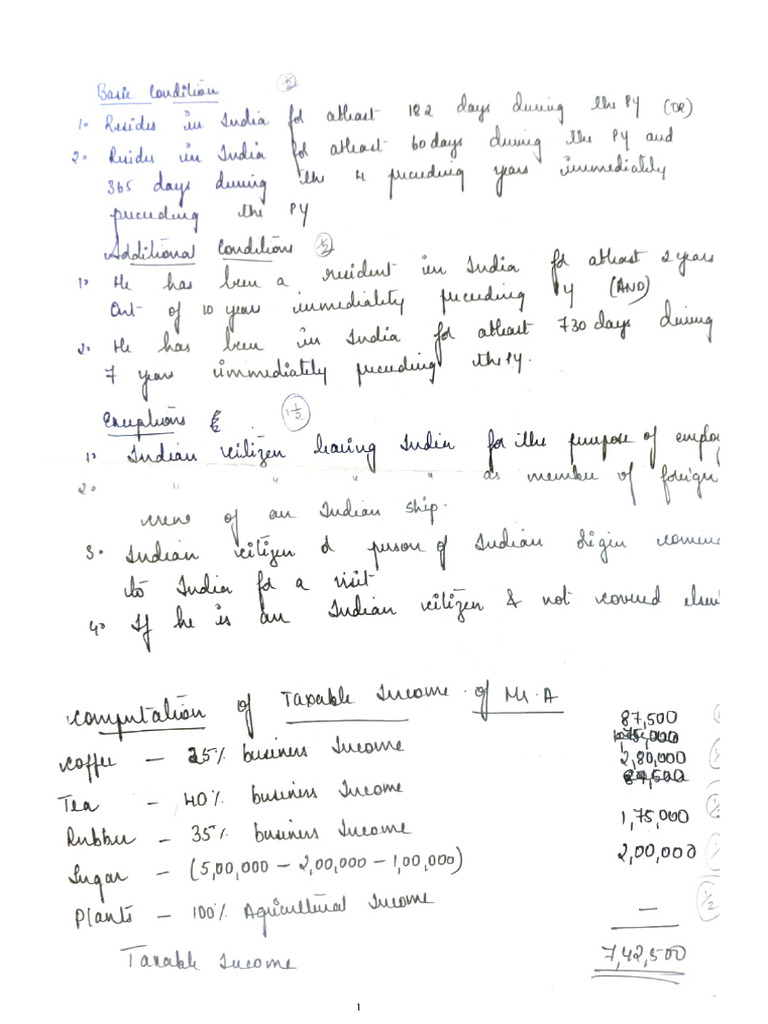 Basic Condition ½
1. Resides in India for atleast 182 days during the PY (OR)
2. Resides in India for atleast 60 days during the PY and
365 days during the 4 preceeding years immediately
preceeding the PY
Additional Conditions ½
1. He has been a resident in India for atleast 2 years
Out of 10 years immediately preceeding PY (AND)
2. He has been in India for atleast 730 days during
7 years immediately preceeding the PY.
Exceptions 1½
1) Indian citizen leaving India for the purpose of employ
2. " " " " as member of foreign
of an Indian ship.
3. Indian citizen or person of Indian Origin coming
to India for a visit
4. If he is an Indian citizen & not covered elsew
Computation of Taxable Income of Mr. A
Coffee — 25% business Income 87,500
Tea — 40% business Income 2,80,000
Rubber — 35% business Income 1,75,000 ½
Sugar — (5,00,000 — 2,00,000 — 1,00,000) 2,00,000
Plants — 100% Agricultural Income — ½
Taxable Income 7,42,500
1